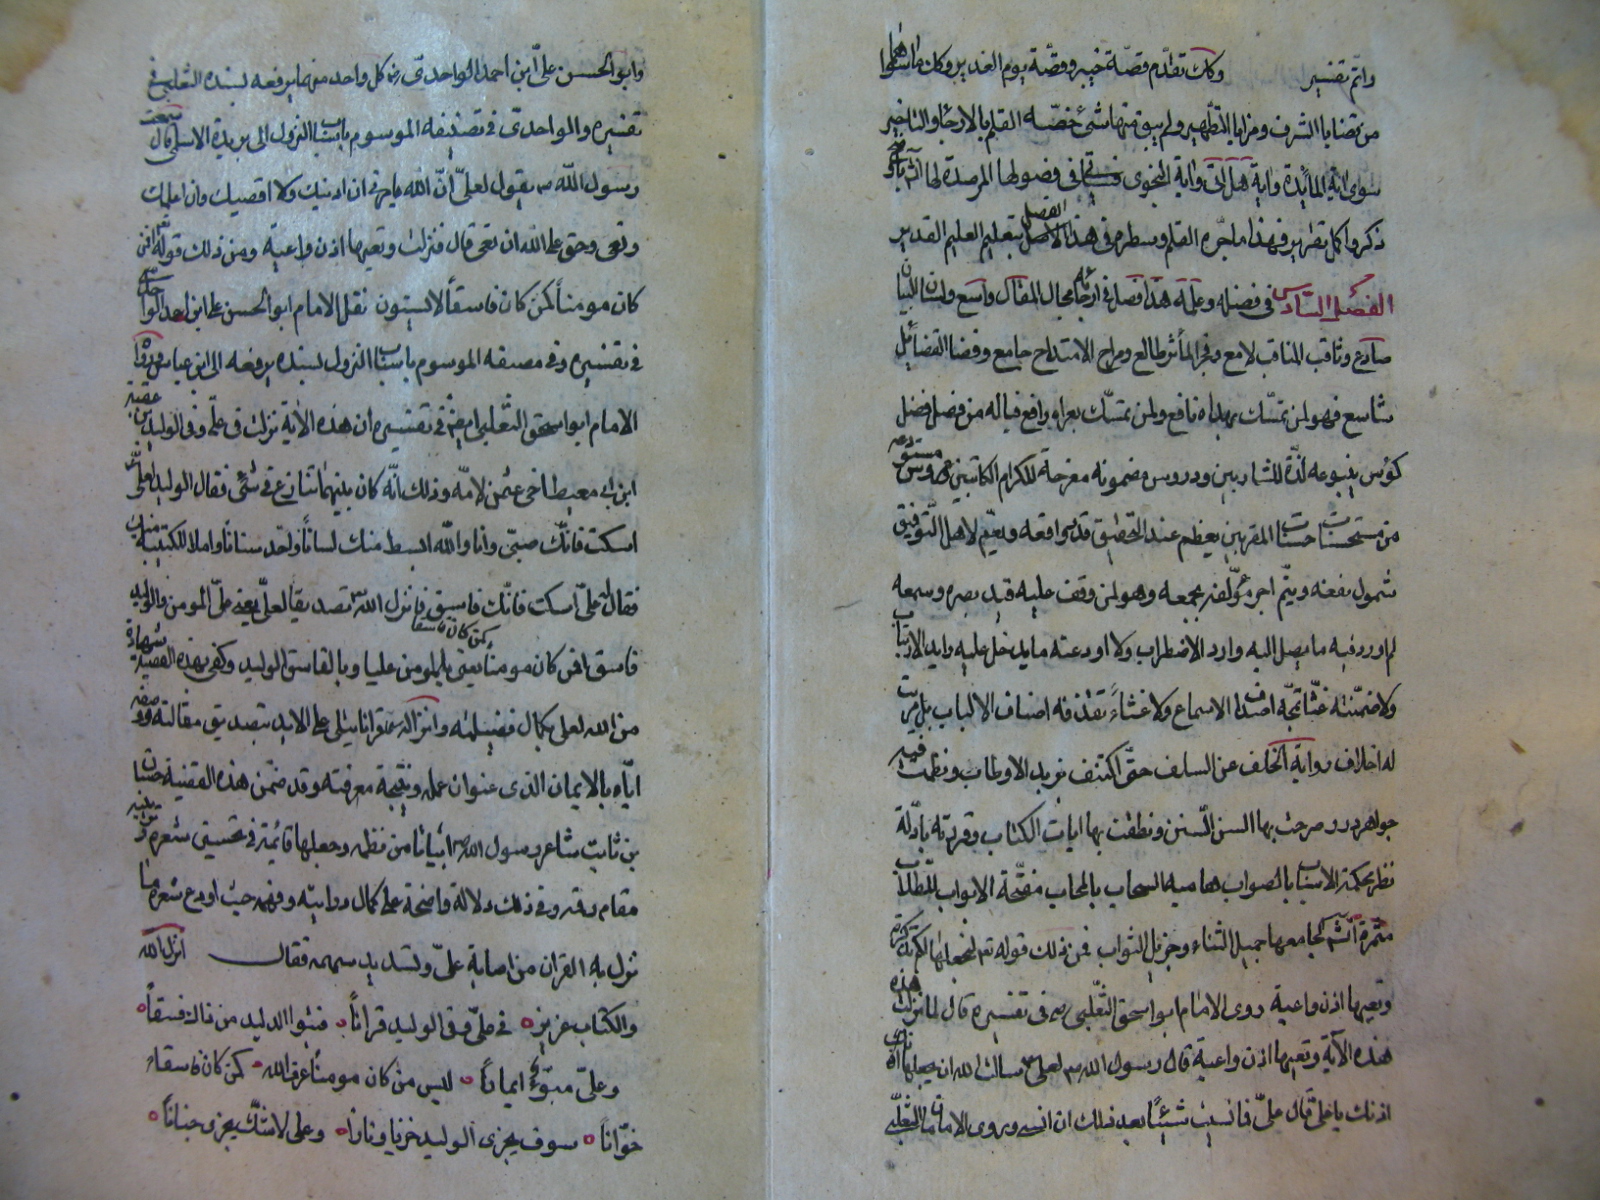 واتم تفسير وكان تقدّم قصّة خيبر وقصّة يوم الغدير وكان ما اشتملوا
من قضايا الشرف ومزايا التطهير ولم يبق منها شئ خصّه القلم بالارجاء والتاخير
سوى اية المائدة واية هل اتى واية النجوى فستاتى فى فصولها المرصدة لها
ذكروا كل تقرير فهذا ما اجره القلم وسطره فى هذا الفصل الاصل بتعليم العليم القدير
الفصل السّادس فى فضله وعلمه هذا فصل فى ارجائه مجال المقال واسع ولسان البيان
صادع وثاقب المناقب لامع وفجر المأثر طالع ومراح الامتداح جامع وفضا الفضائل
شاسع فهو لمن تمسّك بهداه نافع ولمن تمسّك بعراه رافع فياله من فصل فضل
كؤس ينبوعه لذّة للشاربين ودروس مضمونه مفرحة للكرام الكاتبين
من مستحسنات حسنات المقربين يعظم عند التحقيق قدر مواقعه ويعمّ لاهل التوفيق
شمول نفعه ويتمّ اجر مؤلّفه بجمعه وهو لمن وقف عليه قيد بصره وسمعه
لم اورد فيه ما يصل اليه وارد الاضطراب ولا اودعته ما يدخل عليه رايد الارتياب
ولا ضمّنته غثّا تمجّه اصداف الاسماع ولا غثاءً تقذفه اصناف الالباب بل مرت
له اخلاف رواية الخلف عن السلف حتّى اكتنف بزبد الاوطاب ونظمت فيه
جواهر درر صرحت بها السن السّنن ونطقت بها ايات الكتاب وقررته بادّلة
نظر محكمة الاسباب بالصواب هامية السحاب بالمحاب مفتّحة الابواب للطلاب
مثمرة لجامعها جميل الثناء وجزيل الثواب فمن ذلك قوله تع لنجعلها لكم تذكرة
وتعيها اذن واعية روى الامام ابو اسحق الثعلبى ره فى تفسيره قال لما نزلت هذه
هذه الآية وتعيها اذن واعية قال رسول الله ص لعلى ع سالت الله ان يجعلها
اذنك يا على قال علىّ فما نسيت شيئًا بعد ذلك ان انسى وروى الامامان الثعلبى
وابو الحسن علىّ ابن احمد الواحدى رض كل واحد منهما يرفعه بسنده الثعلبى فى
تفسيره والواحدى فى تصنيفه الموسوم باسباب النزول الى بريدة الاسلمى قال سمعت
رسول الله ص يقول لعلىّ انّ الله يامرنى ان ادنيك ولا اقصيك وان اعلمك
وتعى وحق على الله ان تعى قال فنزلت وتعيها اذن واعية ومن ذلك قوله تع افمن
كان مومناً كمن كان فاسقاً لا يستون نقل الامام ابو الحسن على ابن احمد الواحدى
فى تفسيره وفى مصنفه الموسوم باسباب النزول بسنده يرفعه الى ابن عباس ورواه
الامام ابو اسحق الثعلبى ايضا فى تفسيره ان هذه الاية نزلت فى علىّ وفى الوليد بن عقبة
ابن ابى معيط اخى عثمن لامّه وذلك انّه كان بينهما تنازع فى شئ فقال الوليد لعلىّ
اسكت فانّك صبىّ وانا والله ابسط منك لساناً واحد سناناً واملا للكتيبة منك
فقال له علىّ اسكت فانّك فاسق فانزل الله تع تصديقا لعلىّ يعنى علىّ المومن والوليد
فاسق افمن كان مومناً كمن كان فاسقاً يعنى بالمومن عليا وبالفاسق الوليد وكفى بهذه القصّة شهادة
من الله لعلى بكمال فضيلته وانزاله تع قرانا يتلى على الابد بتصديق مقالته ووصفه
ايّاه بالايمان الذى عنوان عمله ونتيجة معرفته وقد ضمّن هذه القضية حسان
بن ثابت شاعر رسول الله ص ابياتا من نظمه وجعلها قائمة فى تحسينى شعره
مقام رقمه وفى ذلك دلالة واضحة على كمال درايته وفهمه حيث اودع شعره ما
نزل به القران من اصابة علىّ وتسديد سهمه فقال انزل الله
والكتاب عزيز فى علىّ وفى الوليد قراناً فتبوا الوليد من ذاك فسقاً
وعلىّ مبوّئ ايماناً ليس من كان مومناً عرف الله كمن كان فاسقاً
خوّاناً سوف يجزى الوليد خزيا وناراً وعلى لا شكّ يجزى جناناً